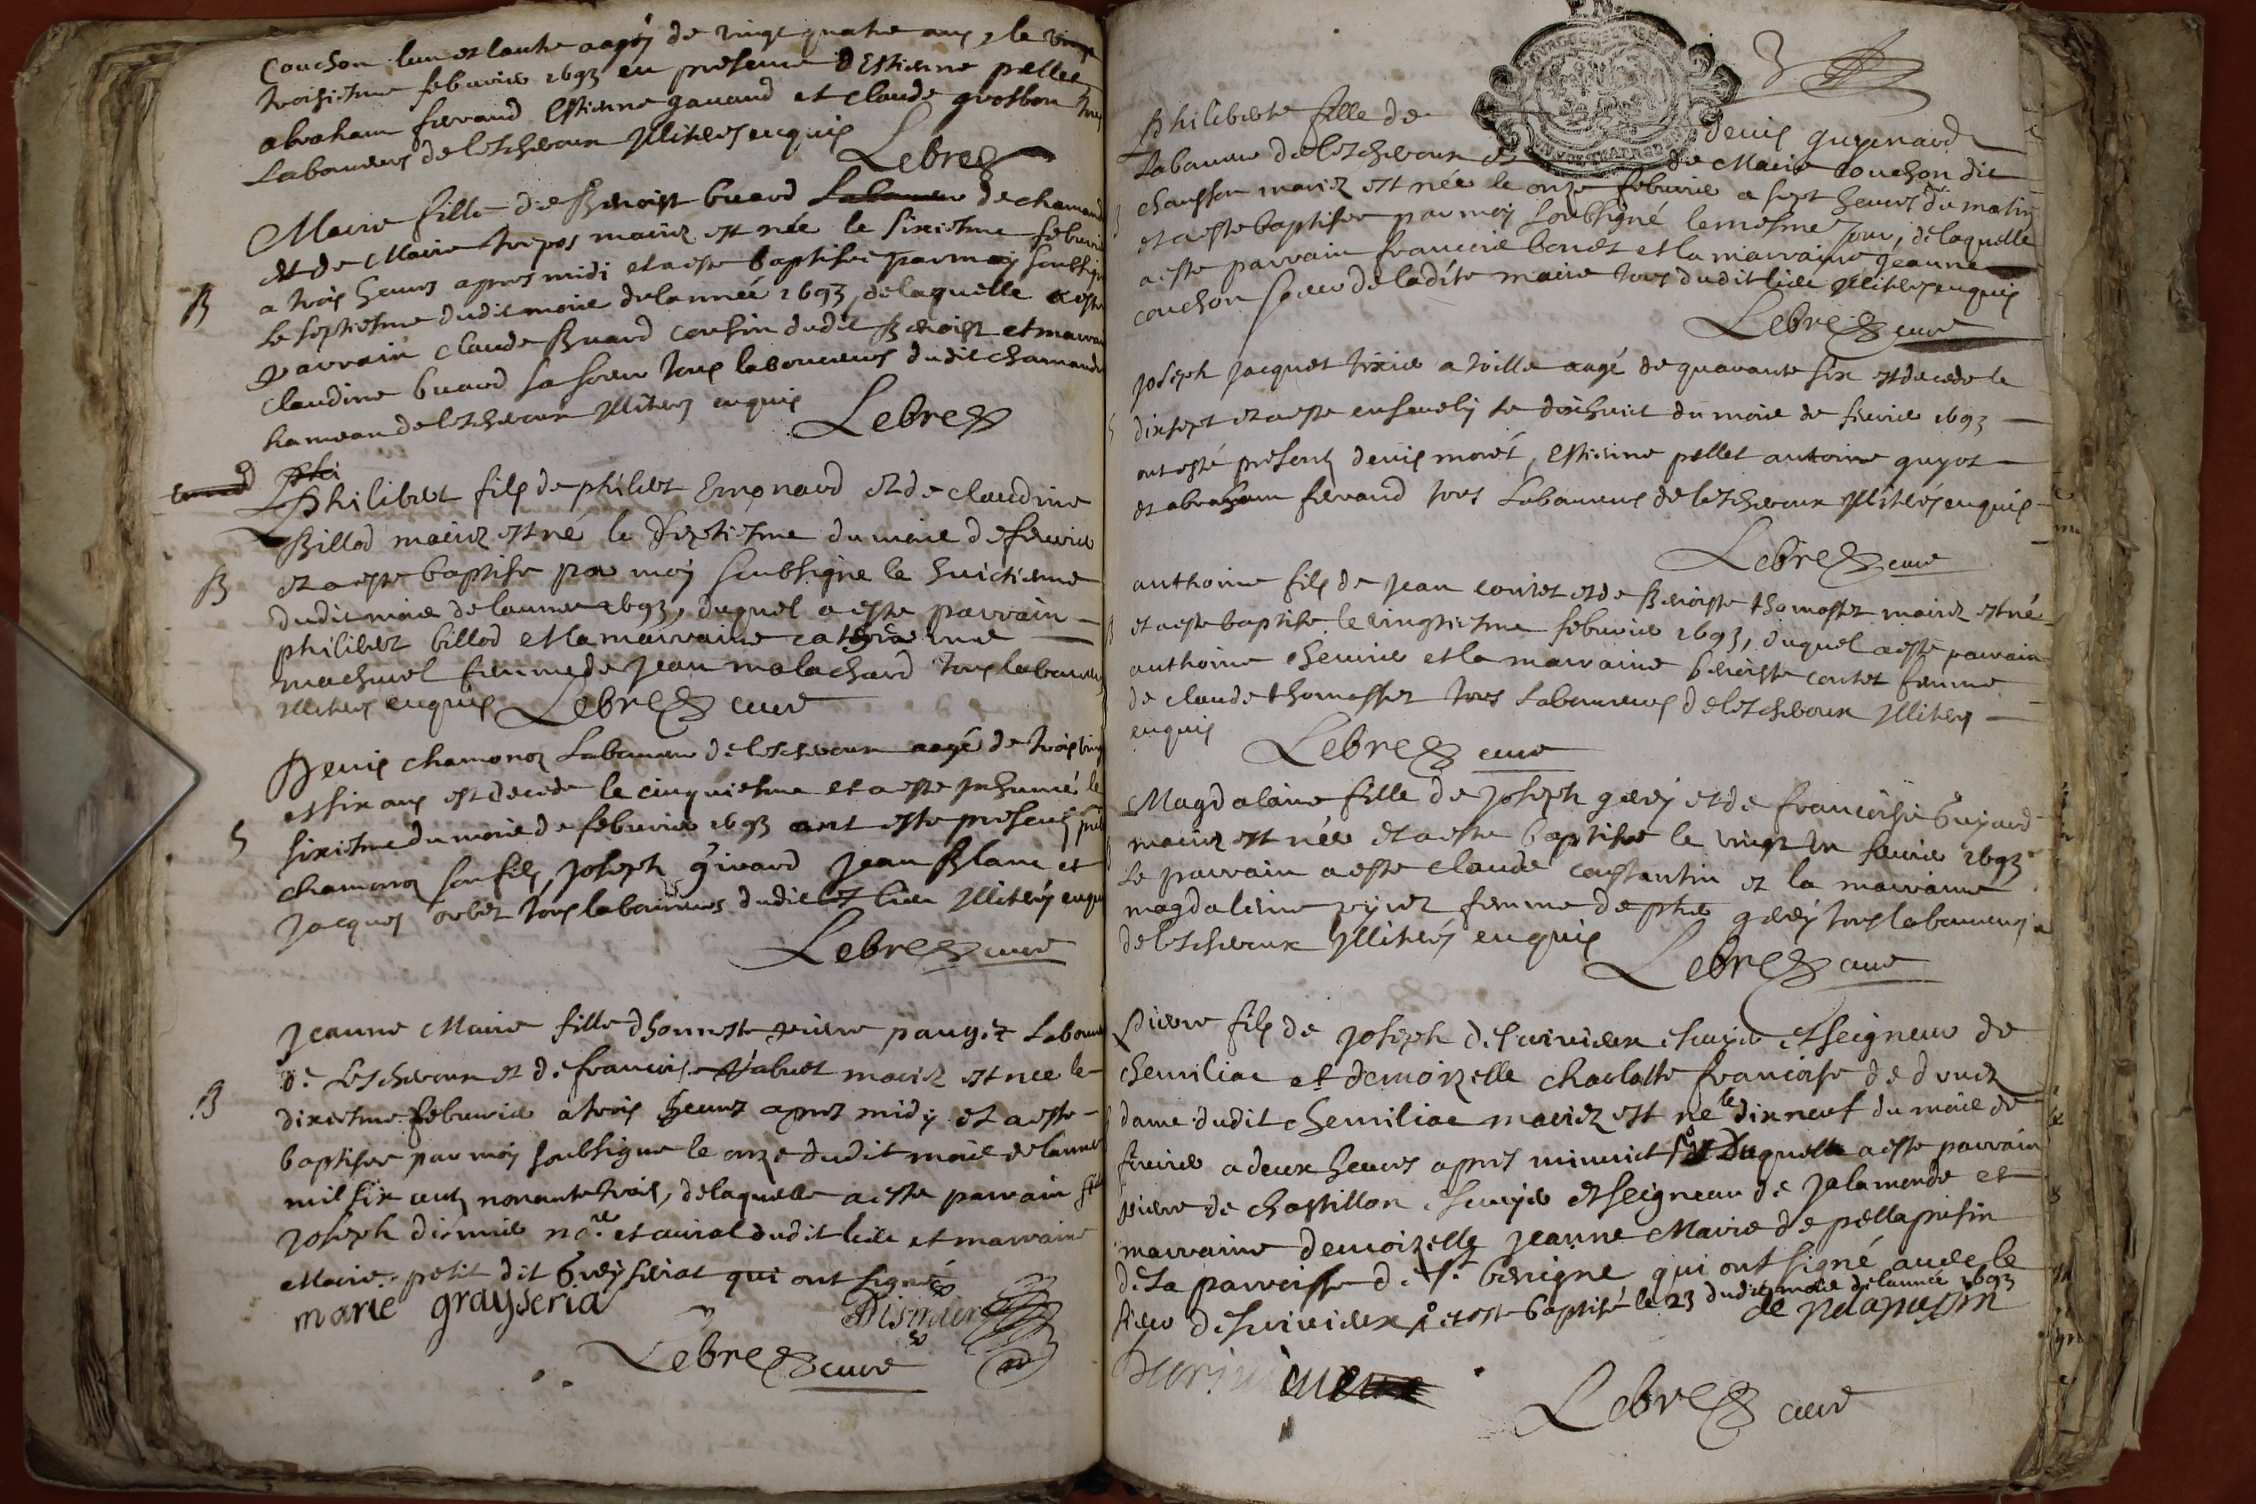 Couchon lun et lautre aagés de vingt quatre ans, le vingt
troisiesme febvrier 1693 en presence d Estienne pellet
abraham feraud Estienne gavand et claude grosbon tous
Laboureurs de letscheroux Illiterés enquis
Lebre
Marie fille de Benoist buard de chamand
et de Marie trepos mariez est née le sixiesme febvrier
a trois heures apres midi et a este baptisée par moy soubsigné
le septiesme dudit moie de lannée 1693, de laquelle a esté
parrain claude Buard cousin dudit Benoist et marraine
claudine buard sa soeur tous laboureurs dudit chamande
hameau de letscheroux Illiterez enquis
Lebre
B
Phi
Philibert fils de philibert Emonard et de claudine
Billod mariez est né le septiesme du moie de fevrier
B
et a este baptisé par moy soubsigné le huictiesme
dudit moie de lannee 1693, duquel a este parrain
philibert billod et la marraine catherine
machurel femme de jean malachard tous laboureurs
Illiterés enquis Lebre curé
Denis chamonoz Laboureur de letscheroux aagé de trois vingt
et six ans est decede le cinquiesme et a este Inhumé le
S
sixiesme du moie de febvrier 1693 ont este presens
chamonoz son fils, Joseph girard Jean Blanc et
Jacques orbet tous laboureurs dudit lieu Illiterés enquis
Lebre curé
Jeanne Marie fille dhonneste pierre paugez Laboureur
de Letscheroux et de francoise Vabuet mariez est nee le
B
dixiesme febvrier a trois heures apres midy et a este
baptisée par moy soubsigné le onze dudit moie de lannee
mil six cents nonante trois, de laquelle a este parrain
Joseph dismier no.re et curial dudit lieu et marraine
Marie petit dit Greyseriat qui ont signés
marie grayseria
Dismier
Lebre curé
Philiberte fille de denis guyenard
Laboureur de letscheroux et de Marie couchon dit
chausson mariez est née le onze febvrier a sept heures du matin
et a este baptisée par moy soubsigné le mesme jour, de laquelle
a este parrain francois bondet et la marraine jeanne
couchon soeur de ladite marie tous dudit lieu Illiterés enquis
Lebre curé
Joseph Jacquet tixier a toille aagé de quarante six est decede le
dixsept et a este ensevely le dixhuict du moie de fevrier 1693
ont esté presens denis moret, Estienne pellet antoine guyot
et abraham feraud tous Laboureurs de letscheroux Illiterés enquis
Lebre curé
anthoine fils de jean contet et de Benoiste thomasset mariez est né
et a este baptisé le vingtiesme febvrier 1693, duquel a esté parrain
anthoine chevrier et la marraine benoiste contet femme
de claude thomasset tous Laboureurs de letscheroux Illiterés
enquis
Lebre curé
Magdalaine fille de Joseph gerey et de francoise Guyard
mariez est née et a este baptisée le vingt un fevrier 1693
Le parrain a este claude constantin et la marraine
magdaleine femme de ptre gerey tous laboureurs
de letscheroux Illiterés enquis
Lebre curé
Pierre fils de Joseph descrivieux escuyer et seigneur de
chemiliac et demoizelle charlotte francoise de druez
dame dudit chemiliac mariez est né le dixneuf du moie de
fevrier a deux heures apres minuict Duquel a este parrain
pierre de chastillon escuyer et seigneur de Jalamonde et
marraine demoizelle jeanne Marie de pellapussin
de la parroisse de St. benigne qui ont signé avec le
sieur descrivieux et este baptisé le 23 dudit moie de lannée 1693
de pelapussin
Lebre curé